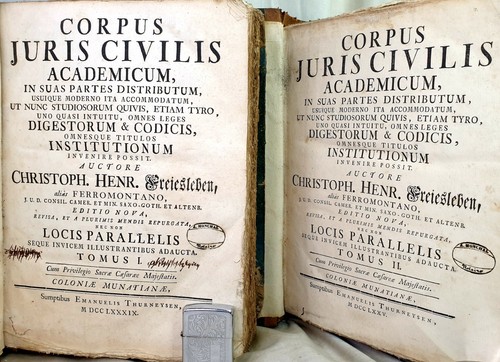 CORPUS
JURIS CIVILIS
ACADEMICUM,
IN SUAS PARTES DISTRIBUTUM,
USUIQUE MODERNO ITA ACCOMMODATUM,
UT NUNC STUDIOSORUM QUIVIS, ETIAM TYRO,
UNO QUASI INTUITU, OMNES LEGES
DIGESTORUM & CODICIS,
OMNESQUE TITULOS
INSTITUTIONUM
INVENIRE POSSIT.
AUCTORE
CHRISTOPH. HENR. Freiesleben,
aliàs FERROMONTANO,
J. U. D. CONSIL. CAMER. ET MIN. SAXO-GOTH. ET ALTENB.
EDITIO NOVA,
REVISA, ET A PLURIMIS MENDIS REPURGATA,
NEC NON
LOCIS PARALLELIS
SEQUE INVICEM ILLUSTRANTIBUS ADAUCTA.
TOMUS I.
Cum Privilegio Sacræ Cæsareæ Majestatis.
COLONIÆ MUNATIANÆ,
Sumptibus EMANUELIS THURNEYSEN,
MDCCLXXXIX.
CORPUS
JURIS CIVILIS
ACADEMICUM,
IN SUAS PARTES DISTRIBUTUM,
USUIQUE MODERNO ITA ACCOMMODATUM,
UT NUNC STUDIOSORUM QUIVIS, ETIAM TYRO,
UNO QUASI INTUITU, OMNES LEGES
DIGESTORUM & CODICIS,
OMNESQUE TITULOS
INSTITUTIONUM
INVENIRE POSSIT.
AUCTORE
CHRISTOPH. HENR. Freiesleben,
aliàs FERROMONTANO,
J. U. D. CONSIL. CAMER. ET MIN. SAXO-GOTH. ET ALTENB.
EDITIO NOVA,
REVISA, ET A PLURIMIS MENDIS REPURGATA,
NEC NON
LOCIS PARALLELIS
SEQUE INVICEM ILLUSTRANTIBUS ADAUCTA.
TOMUS II.
Cum Privilegio Sacræ Cæsareæ Majestatis.
COLONIÆ MUNATIANÆ,
Sumptibus EMANUELIS THURNEYSEN,
MDCCLXXV.